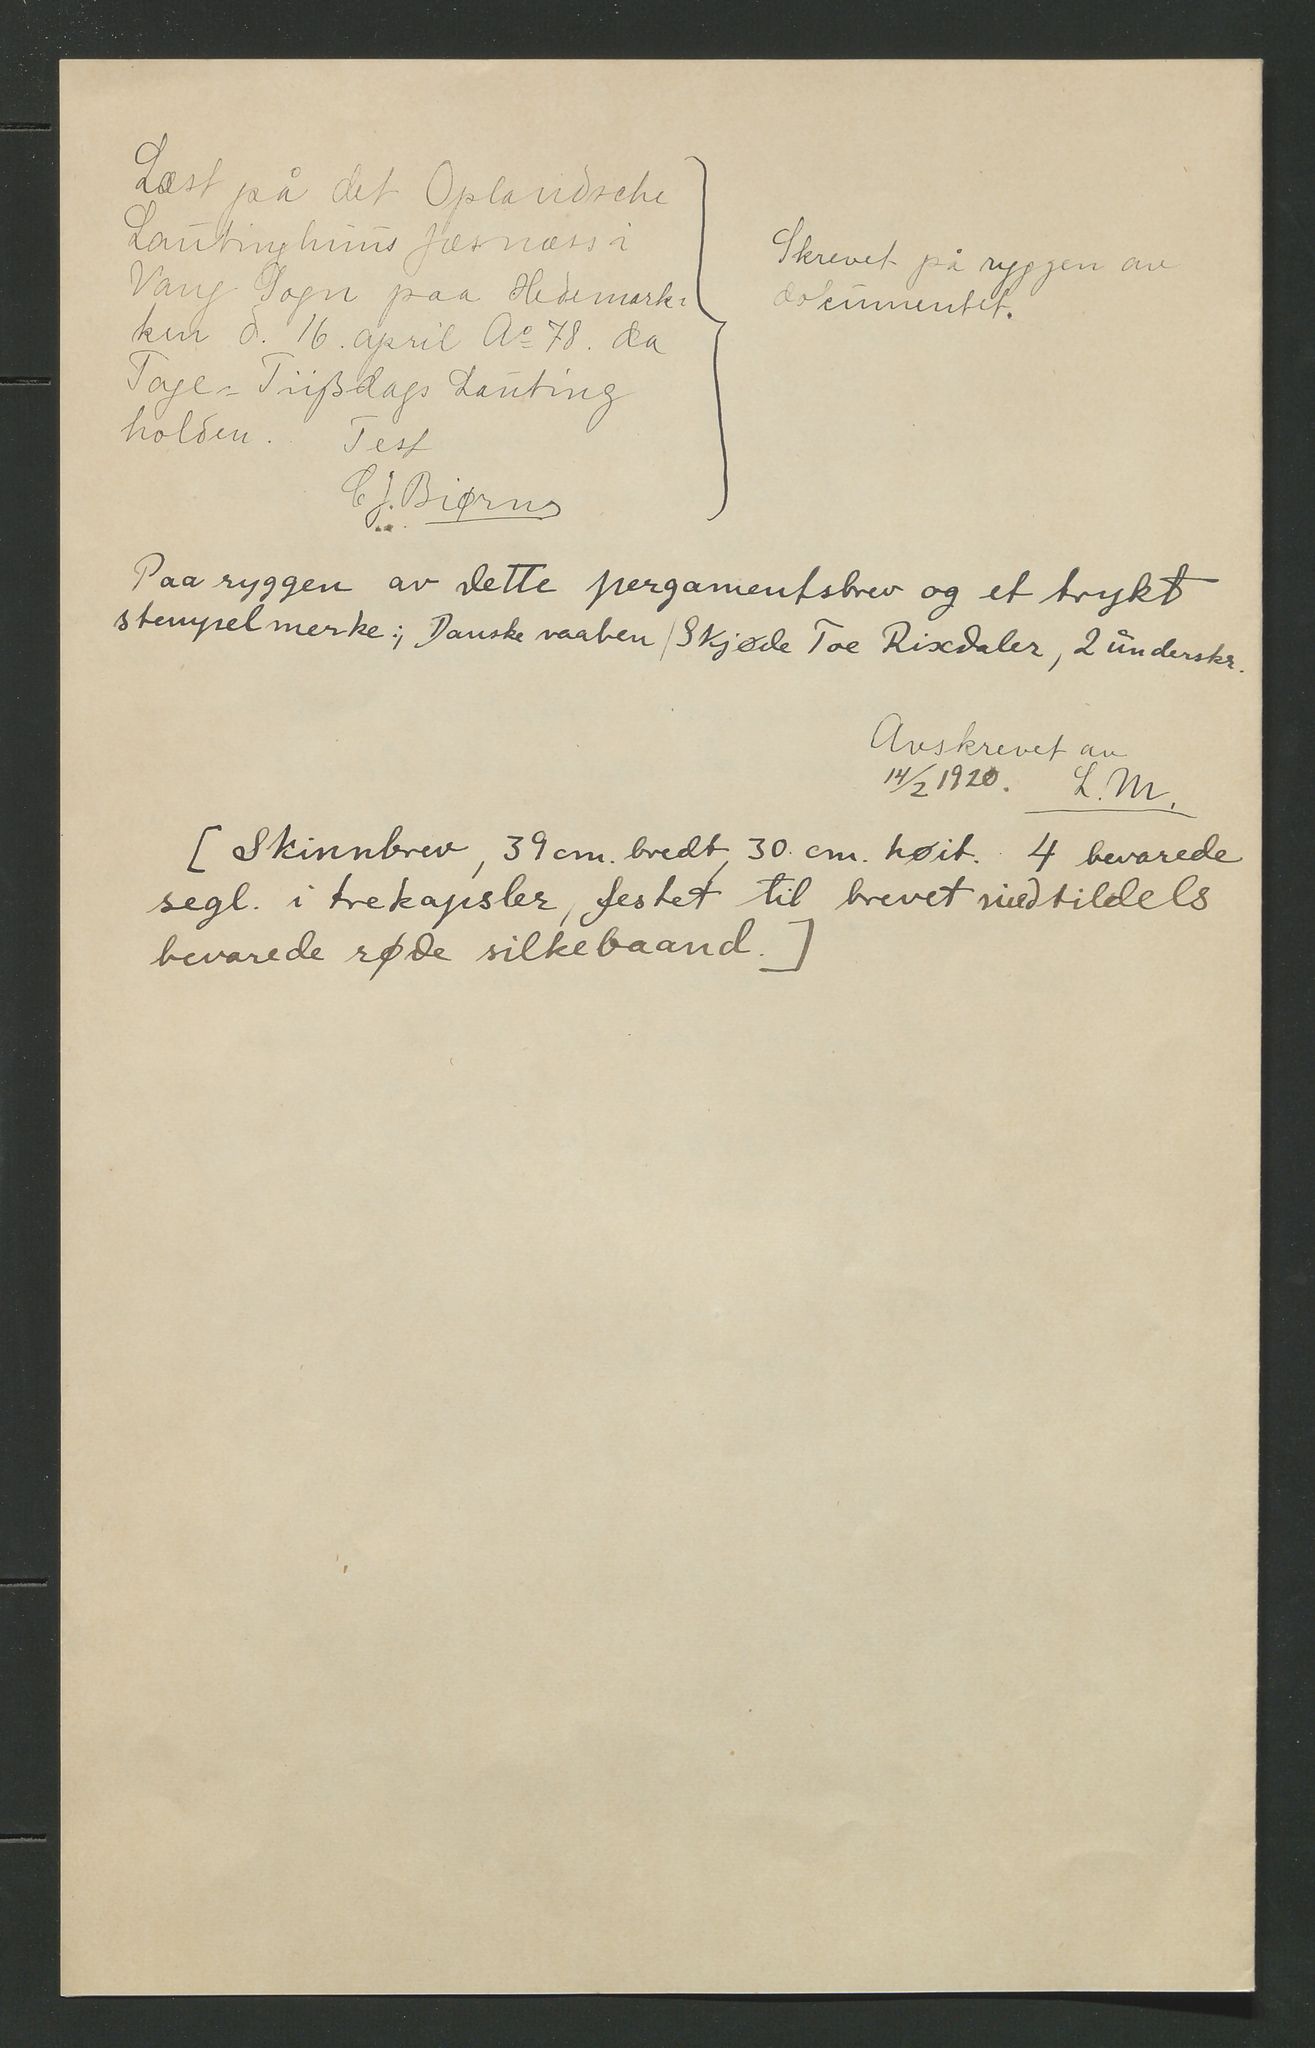 Læst på det Oplandsche
Lautinghuus Jæsnæss i
Vang Sogn paa Hedemark-
ken d. 16. april A° 78. da
Tage- Tiißdags Lauting
holden. Test
C J. Biørns
Skrevet på ryggen av
dokumentet.
Paa ryggen av dette pergamentsbrev og et trykt
stempelmerke:, Danske vaaben / Skjøde Toe Rixdaler, 2 underskr.
Avskrevet av
14/2 1920. L. M.
[ Skinnbrev, 39 cm. bredt, 30. cm. høit. 4 bevarede
segl. i trekapsler, festet til brevet med tildels
bevarede røde silkebaand. ]